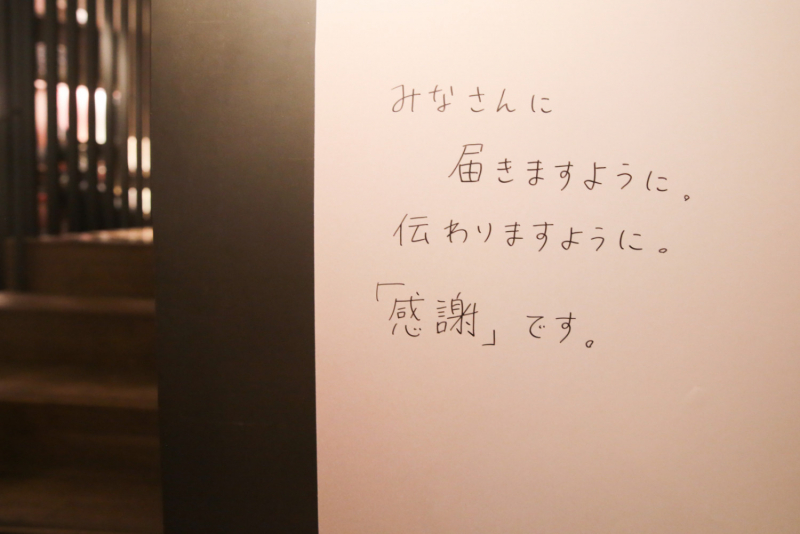 みなさんに
届きますように。
伝わりますように。
「感謝」です。